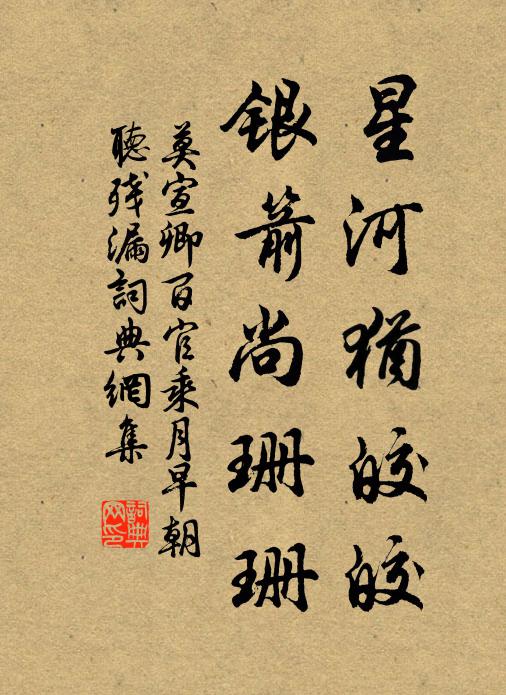 星河犹皎皎
银箭尚珊珊
莫宣卿百官乘月早朝
聽残漏詞典網集
詞典网印